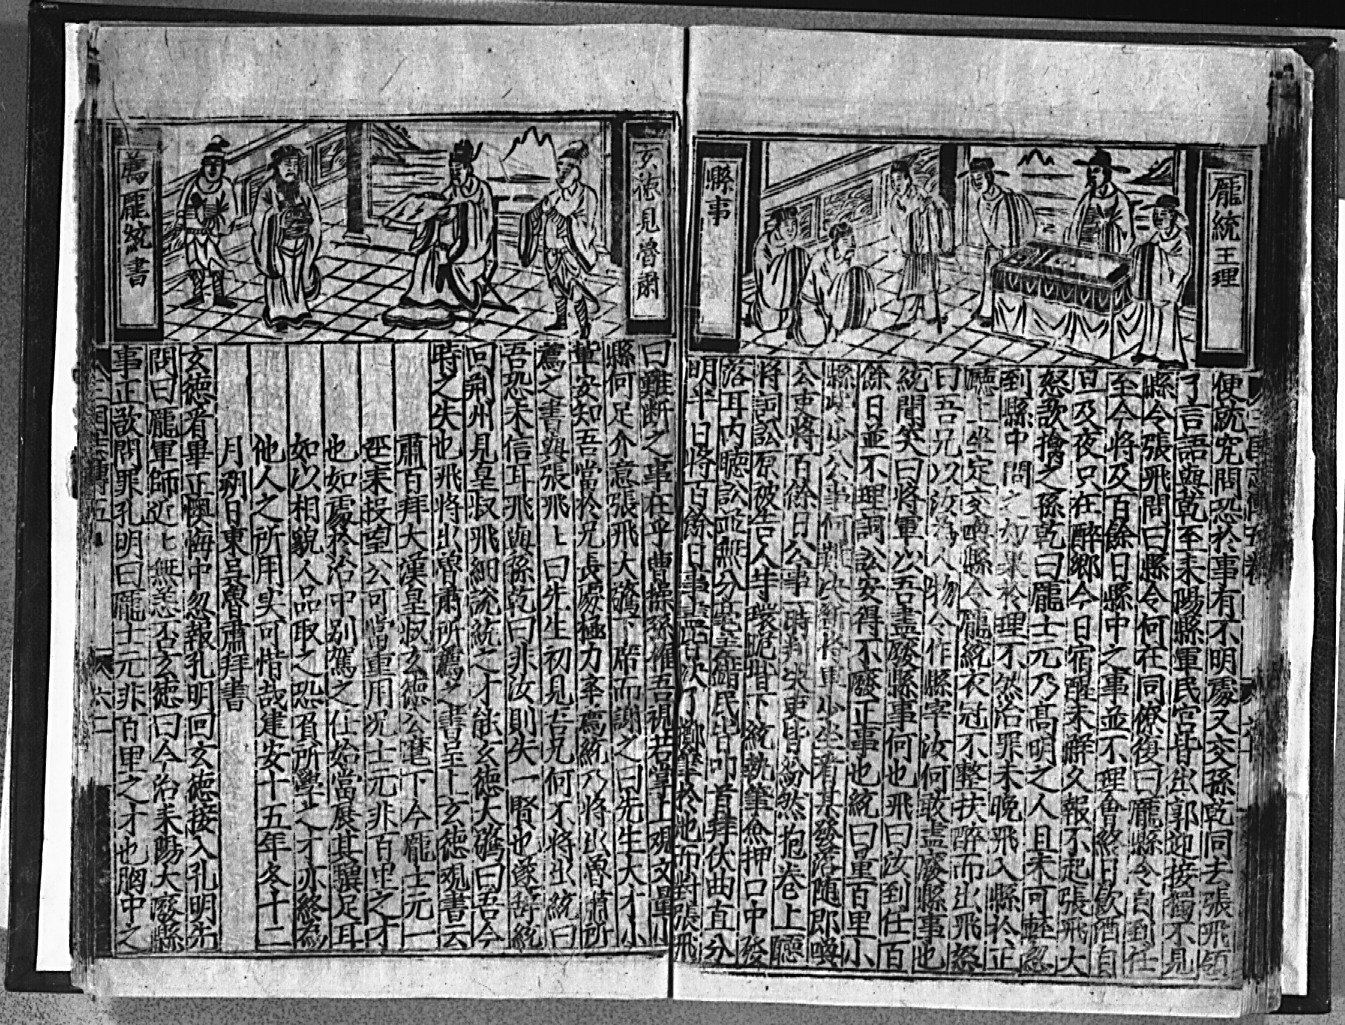 龐統王理
縣事
便統究問恐於事有不明處又交孫乾同去張飛領
了言語與乾至耒陽縣軍民官皆出郭迎接獨不見
縣令張飛問曰縣令何在同僚復曰龐縣令自到任
至今將及百餘日縣中之事並不理會終日飲酒自
旦及夜只在醉鄉今日宿醒未解久報不起張飛大
怒欲擒之孫乾曰龐士元乃高明之人且未可輕忽
到縣中問之如果於理不然治罪未晚飛入縣於正
廳上坐定交喚縣令龐統衣冠不整扶醉而出飛怒
曰吾兄以汝為人物令作縣宰汝何敢盡廢縣事也
統聞笑曰將軍以吾盡廢縣事何也飛曰汝到任百
餘日並不理詞訟安得不廢正事也統曰量百里小
縣些小公事何難決斷將軍少坐看其發落隨即喚
公吏將百餘日公事一時判決吏皆紛然抱卷上廳
將詞訟原被告人等環跪堦下統執筆僉押口中發
落耳內聽訟並無分毫差錯民皆叩首拜伏曲直分
明半日將百餘日事盡皆決了擲筆於地而對張飛
玄德見魯肅
薦龐統書
曰難断之事在乎曹操孫權吾視若掌上觀文量小
縣何足介意張飛大驚下席而謝之曰先生大才小
軍安知吾當於兄長處極力率薦統乃將出魯肅所
薦之書與張飛上曰先生初見吾兄何不將出統曰
吾恐未信耳飛與孫乾曰非汝則失一賢也遂辞統
回荊州見皇叔飛細說統之才能玄德大驚曰吾今
時之失也飛將出魯肅所薦之書呈上玄德觀書云
肅百拜大漢皇叔玄德公麾下今龐士元一
逕來投望公可當重用况士元非百里之才
也如處於治中別駕之任始當展其驥足耳
如以相貌人品取之恐負所學之才亦終為
他人之所用実可惜哉建安十五年冬十二
月朔日東吳魯肅拜書
玄德看畢正懊悔中忽報孔明回玄德接入孔明先
問曰龐軍師近上無恙否玄德曰今治耒陽大廢縣
事正欲問罪孔明曰龐士元非百里之才也胸中之